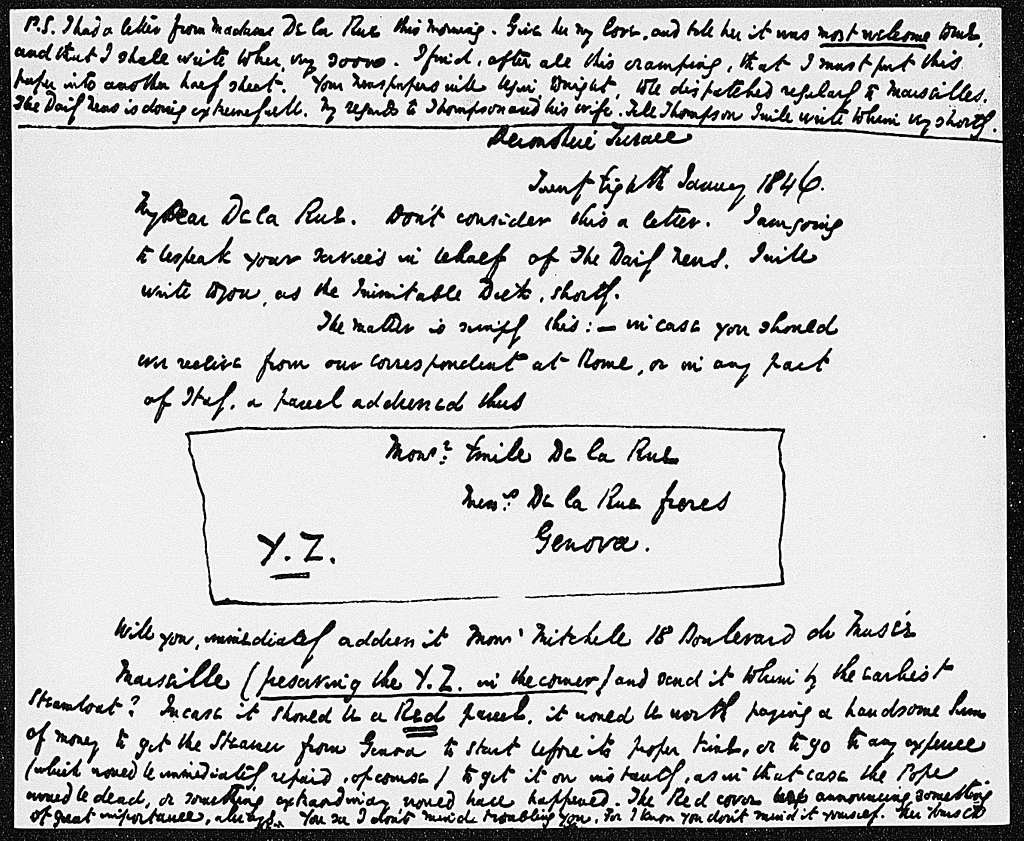 P.S. I had a letter from Madame De la Rue this morning. Give her my love, and tell her it was most welcome
and that I shall write to her very soon. I find, after all this cramping, that I must put this
paper into another half sheet. Your newspapers will begin tonight, to be dispatched regularly to Marseilles.
The Daily News is doing extremely well. My regards to Thompson and his wife. Tell Thompson I will write to him very shortly.
Devonshire Terrace
Twenty Eighth January 1846.
My Dear De la Rue. Don't consider this a letter. I am going
to bespeak your services in behalf of The Daily News. I will
write to you, as the Inimitable Dick, shortly.
The matter is simply this:— in case you should
ever receive from our correspondent at Rome, or in any part
of Italy, a parcel addressed thus
Monsr. Emile De la Rue
Messrs. De la Rue freres
Genova.
Y.Z.
Will you, immediately address it Monsr Mitchell 18 Boulevard du Musée
Marseille (preserving the Y.Z. in the corner) and send it to him by the earliest
Steamboat? In case it should be a Red parcel, it would be worth paying a handsome sum
of money to get the Steamer from Genoa to start before its proper time, or to go to any expence
(which would be immediately repaid, of course) to get it on instantly, as in that case the Pope
would be dead, or something extraordinary would have happened. The Red cover announcing something
of great importance, always. You see I don't mind troubling you, for I know you don't mind it yourself.